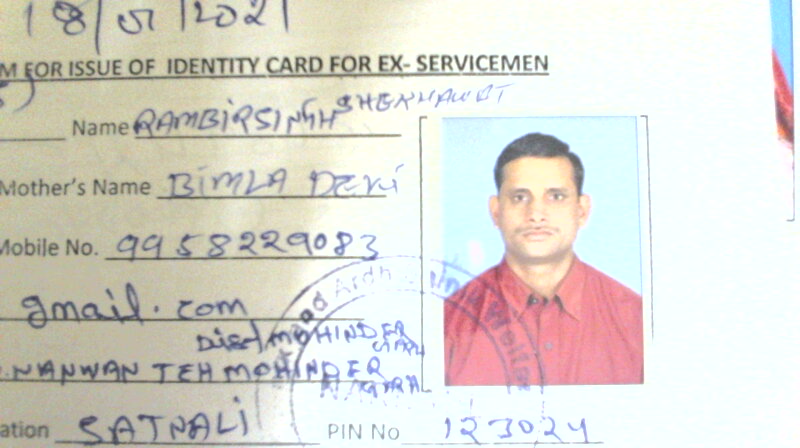 18/01/2021
M FOR ISSUE OF IDENTITY CARD FOR EX- SERVICEMEN
Name RAMBIRSINGH SHEKHAWAT
Mother's Name BIMLA DEVI
Mobile No. 9958229083
gmail.com
Dist MOHINDER GARH
NANWAN TEH MOHINDER GARH
ation SATNALI PIN No 123024